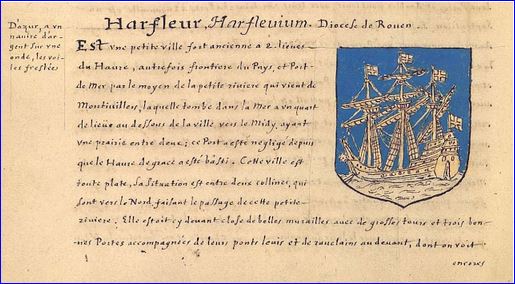 Harfleur, Harflevium. Diocese de Rouen
D'azur, a vn
navire d'ar-
gent sur vne
onde, les voi-
les freslées
Est vne petite ville fort ancienne a 2. lieües
du Havre, autrefois frontiere du Pays, et Port
de Mer par le moyen de la petite riviere qui vient de
Montivilliers, laquelle tombe dans la Mer a vn quart
de lieüe au dessous de la ville vers le Midy, ayant
vne prairie entre deux; ce Port a esté negligé depuis
que le Havre de grace a esté basti. Cette ville est
toute plate, sa situation est entre deux collines, qui
sont vers le Nord, faisant le passage de cette petite
riviere. Elle estoit cy devant close de belles murailles avec de grosses tours et trois bon-
nes Portes accompagnées de leurs ponts levis et de ravelains au devant, dont on voit
encores